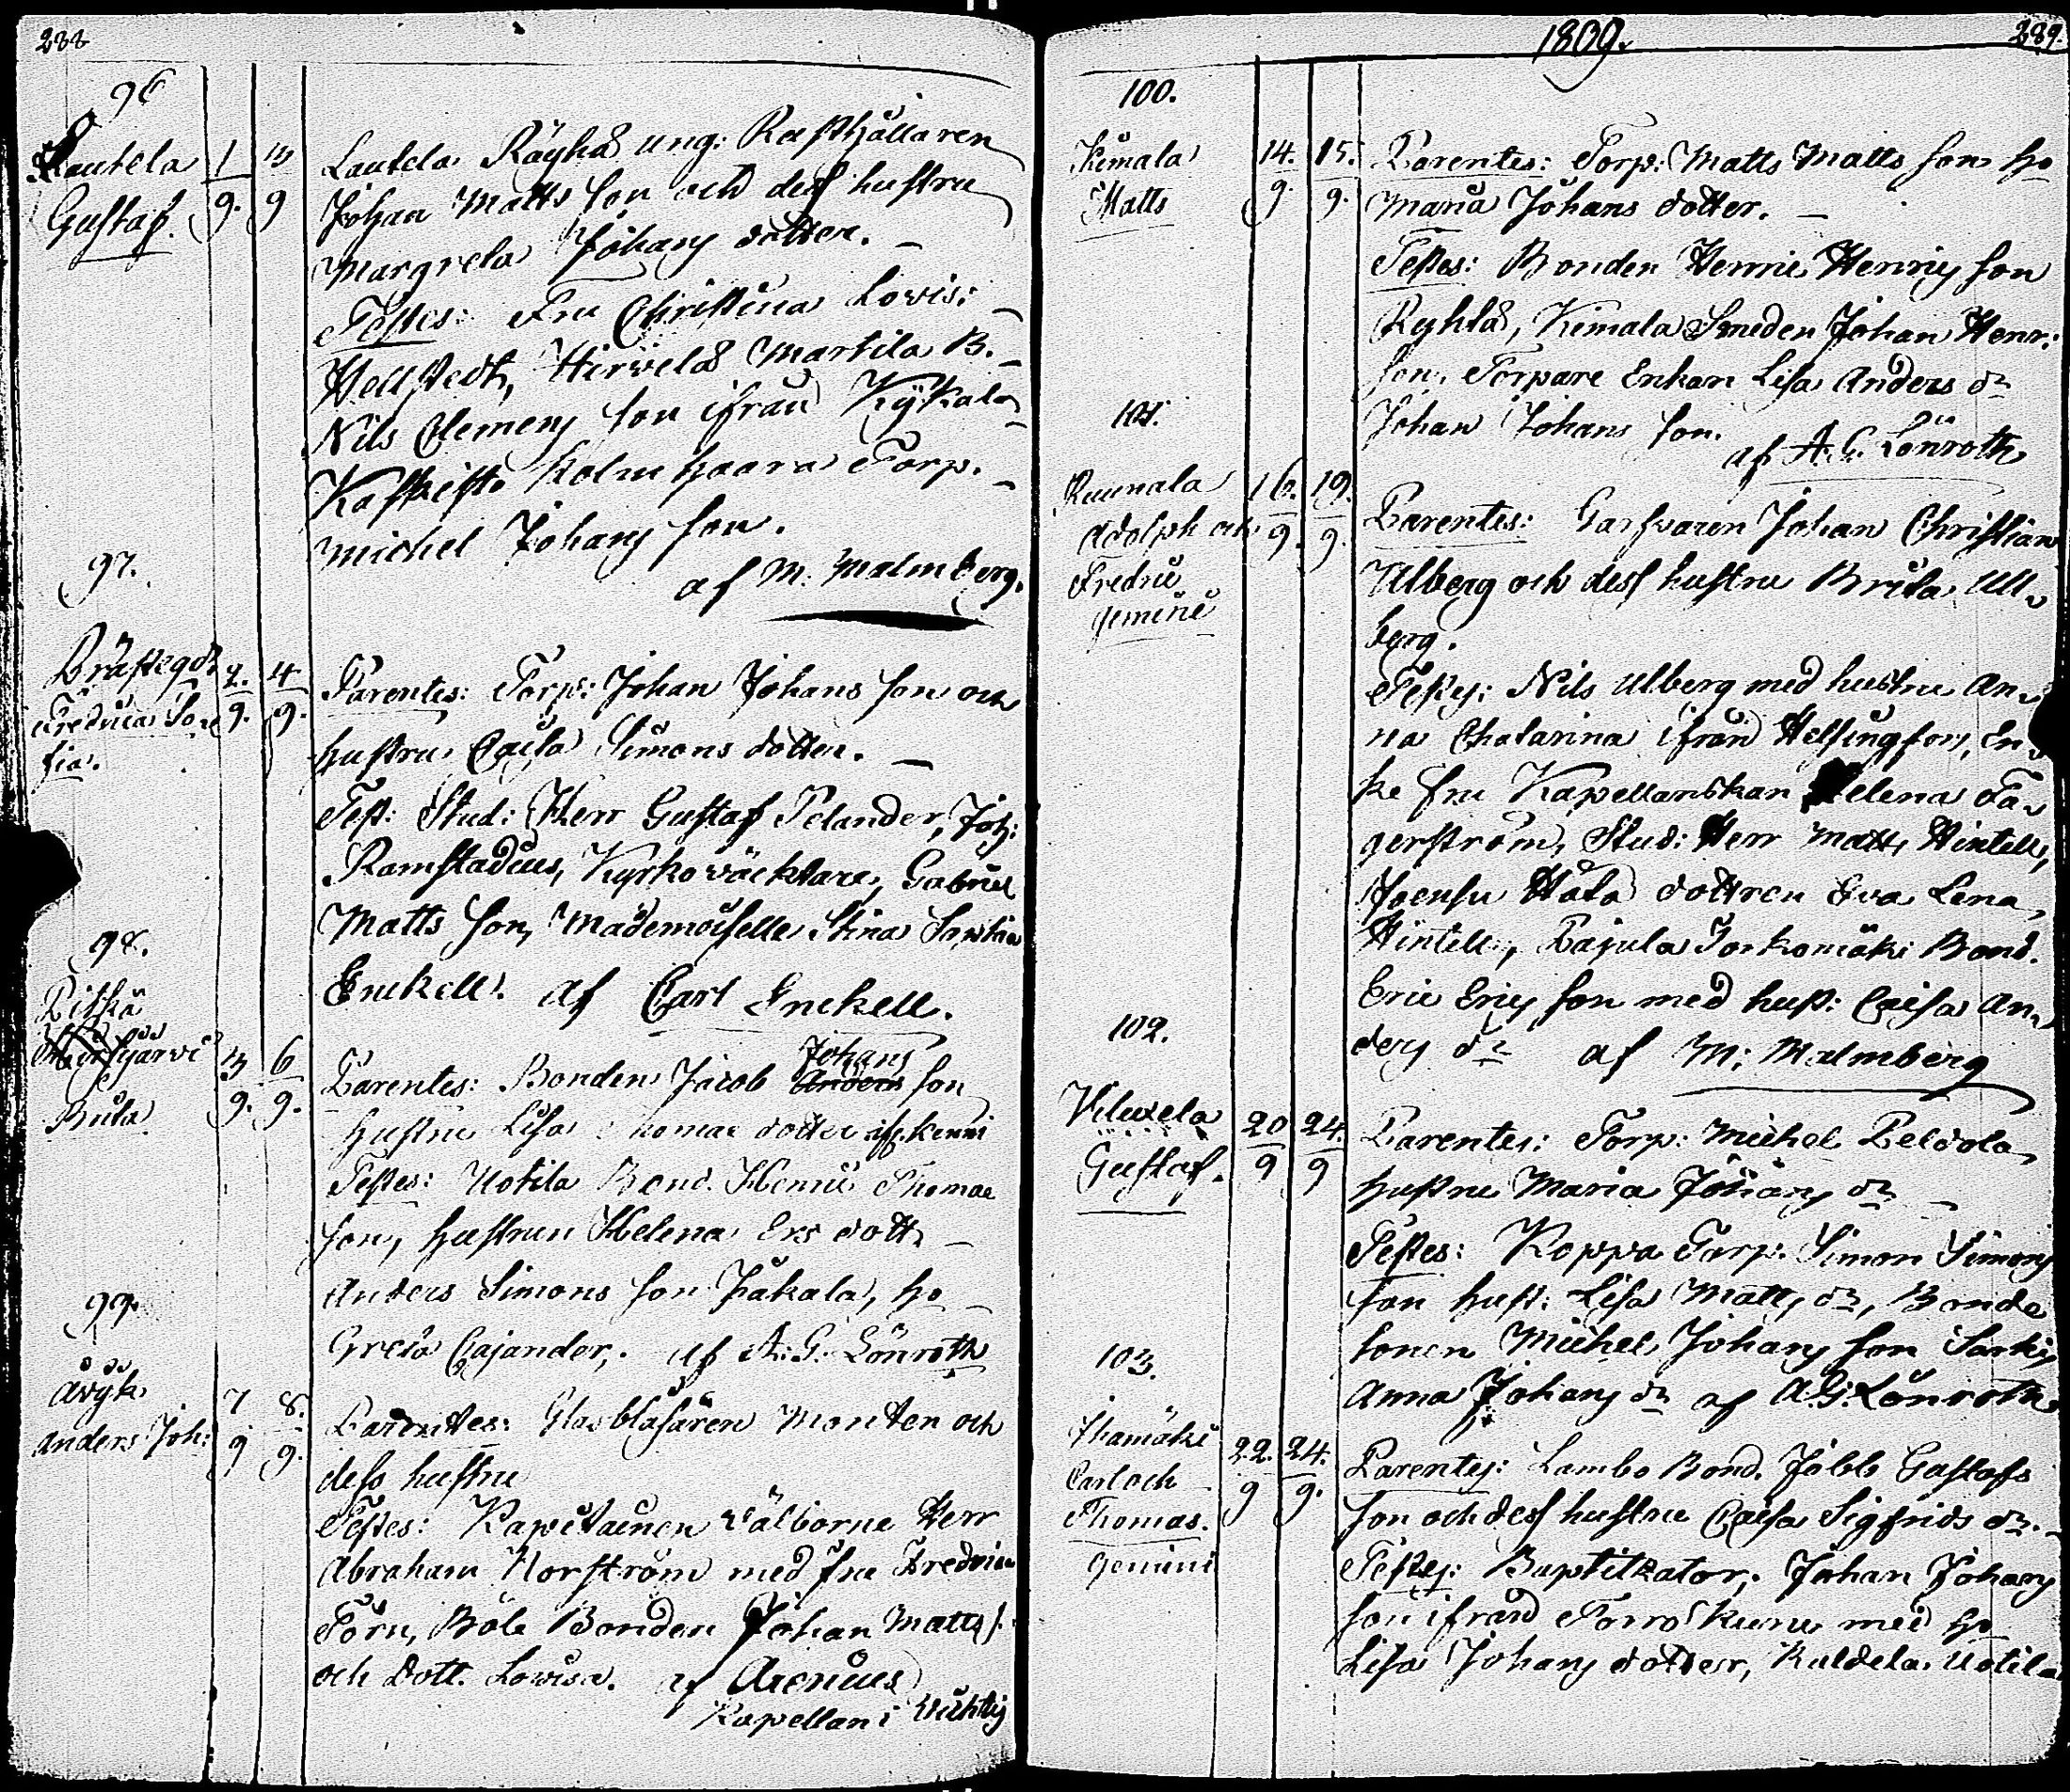 288
96
Lautela 1 3
Gustaf. 9. 9
Lautela Räyhä ung: Rusthållaren
Johan Matts son och dess hustru
Margreta Johans dotter. —
Testes: Fru Christina Lovis:
Hellstedt, Hirvelä Martila B.
Nils Clemens son ifrån Kÿkala
Kaskisto Kolmhaara Torp.
Michel Johans son.
af M: Malmberg.
97.
Prästegd 2. 4
Fredrica So 9. 9.
fia.
Parentes: Torp: Johan Johans son och
hustru Caisa Simons dotter. —
Test: Stud: Herr Gustaf Pelander, Joh:
Ramstadius, Kyrkowäcktare, Gabriel
Matts son, Mademoiselle Stina Sophia
Enckell. af Carl Enckell.
98.
Pitkä
järvi 3 6
Brita 9. 9.
Johans
Parentes: Bonden Jacob Anders son
hustru Lisa Thomae dotter
Testes: Uotila Bond. Henric Thomae
son, hustrun Helena Ers dott.
Anders Simons son Pakala, ho
Greta Cajander, af A: G. Lönroth
99.
Åvÿk 7 8.
Anders Joh: 9 9.
Parentes: Glasblåsaren Monten och
dess hustru
Testes: Kapitainen Välborne Herr
Abraham Norström med fru Fredrica
Törn, Böle Bonden Johan Matts s.
och dott. Lovisa. af Arenius
Kapellan i Wichtis
1809.
289.
100.
Kimala 14. 15.
Matts 9. 9.
Parentes: Torp: Matts Matts son ho
Maria Johans dotter. —
Testes: Bonden Henric Henrics son
Ryhtä, Kimala Smeden Johan Henr:
son, Torpare Enkan Lisa Anders dr
Johan Johans son.
af A. G. Lönroth
101.
Ruunala 16. 19.
Adolph och 9. 9.
Fredric
gemini
Parentes: Garfvaren Johan Christian
Ulberg och dess hustru Brita Ul
berg.
Testes: Nils Ulberg med hustru An
na Chatarina ifrån Helsingfors, En
ke fru Kapellanskan Helena Fa
gerström, Stud: Herr Matts Hintell,
Joensu Håla dottren Eva Lena
Hintell, Pajula Jorkomäki Bond.
Eric Erics son med hust: Caisa An
ders dr af M: Malmberg
102.
Vilwela 20 24.
Gustaf. 9 9
Parentes: Torp: Michel Peldola
hustru Maria Johans dr —
Testes: Koppa Torp. Simon Simons
son hust: Lisa Matts dr, Bonde
sonen Michel Johans son Sarkis
Anna Johans dr af A.G. Lönroth
103.
Ihamäki 22. 24.
Carl och 9 9.
Thomas.
gemini
Parentes: Lambo Bond. Jobb Gustafs
son och dess hustru Caisa Sigfrids dr. —
Testes: Baptizator: Johan Johans
son ifrån Torro Kuru med ho
Lisa Johans dotter, Kuldela Uotila